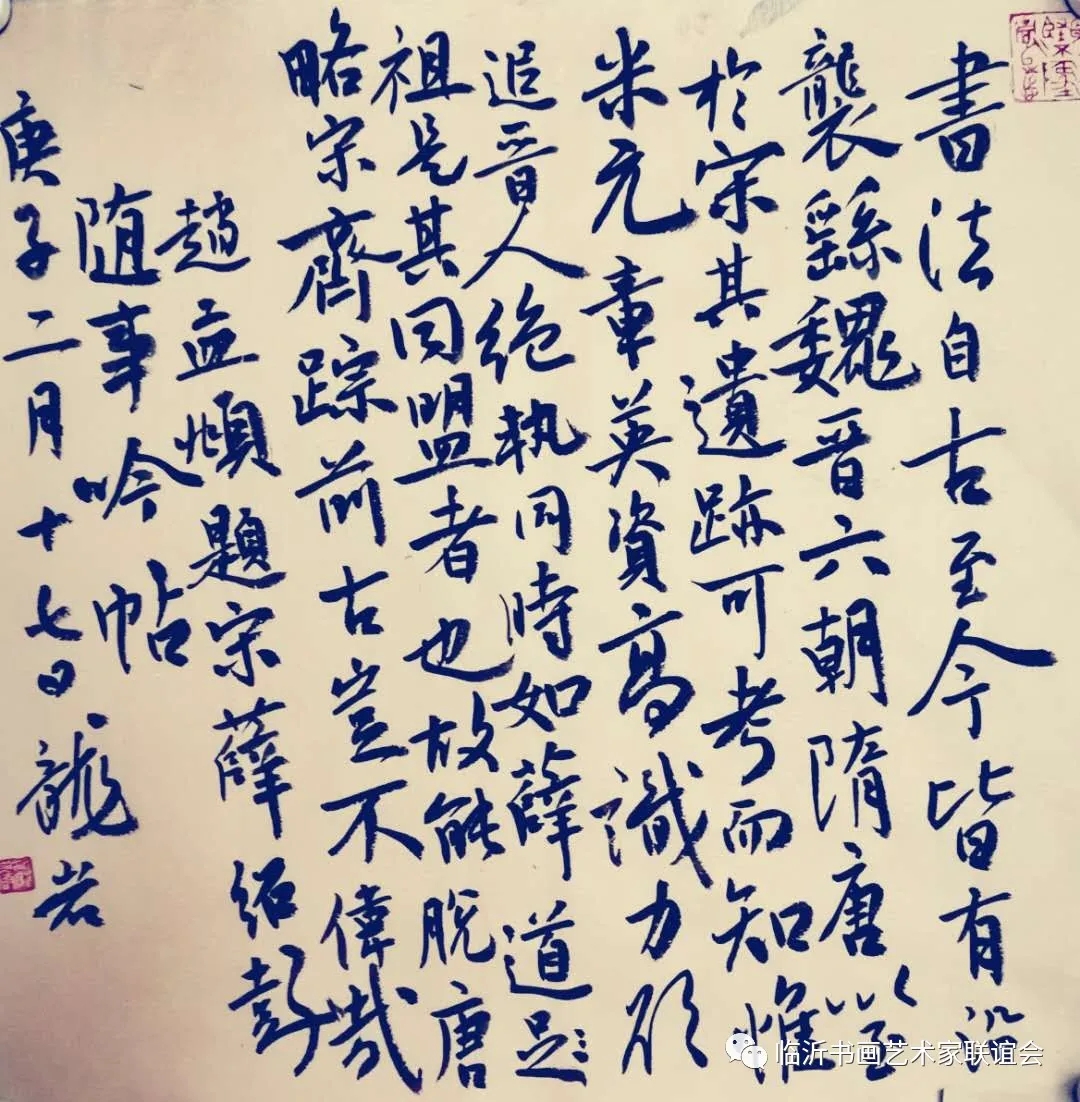 書法自古至今皆有沿
襲繇魏晋六朝隋唐以至
於宋其遺跡可考而知惟
米元章英資高識力欲
追晋人絶執同時如薛道
祖是其同盟者也故能脫唐
略宗齊踪前古豈不偉哉
趙孟頫題宋薛紹彭
随事吟帖
庚子二月十七日龍岩
临沂书画艺术家联谊会